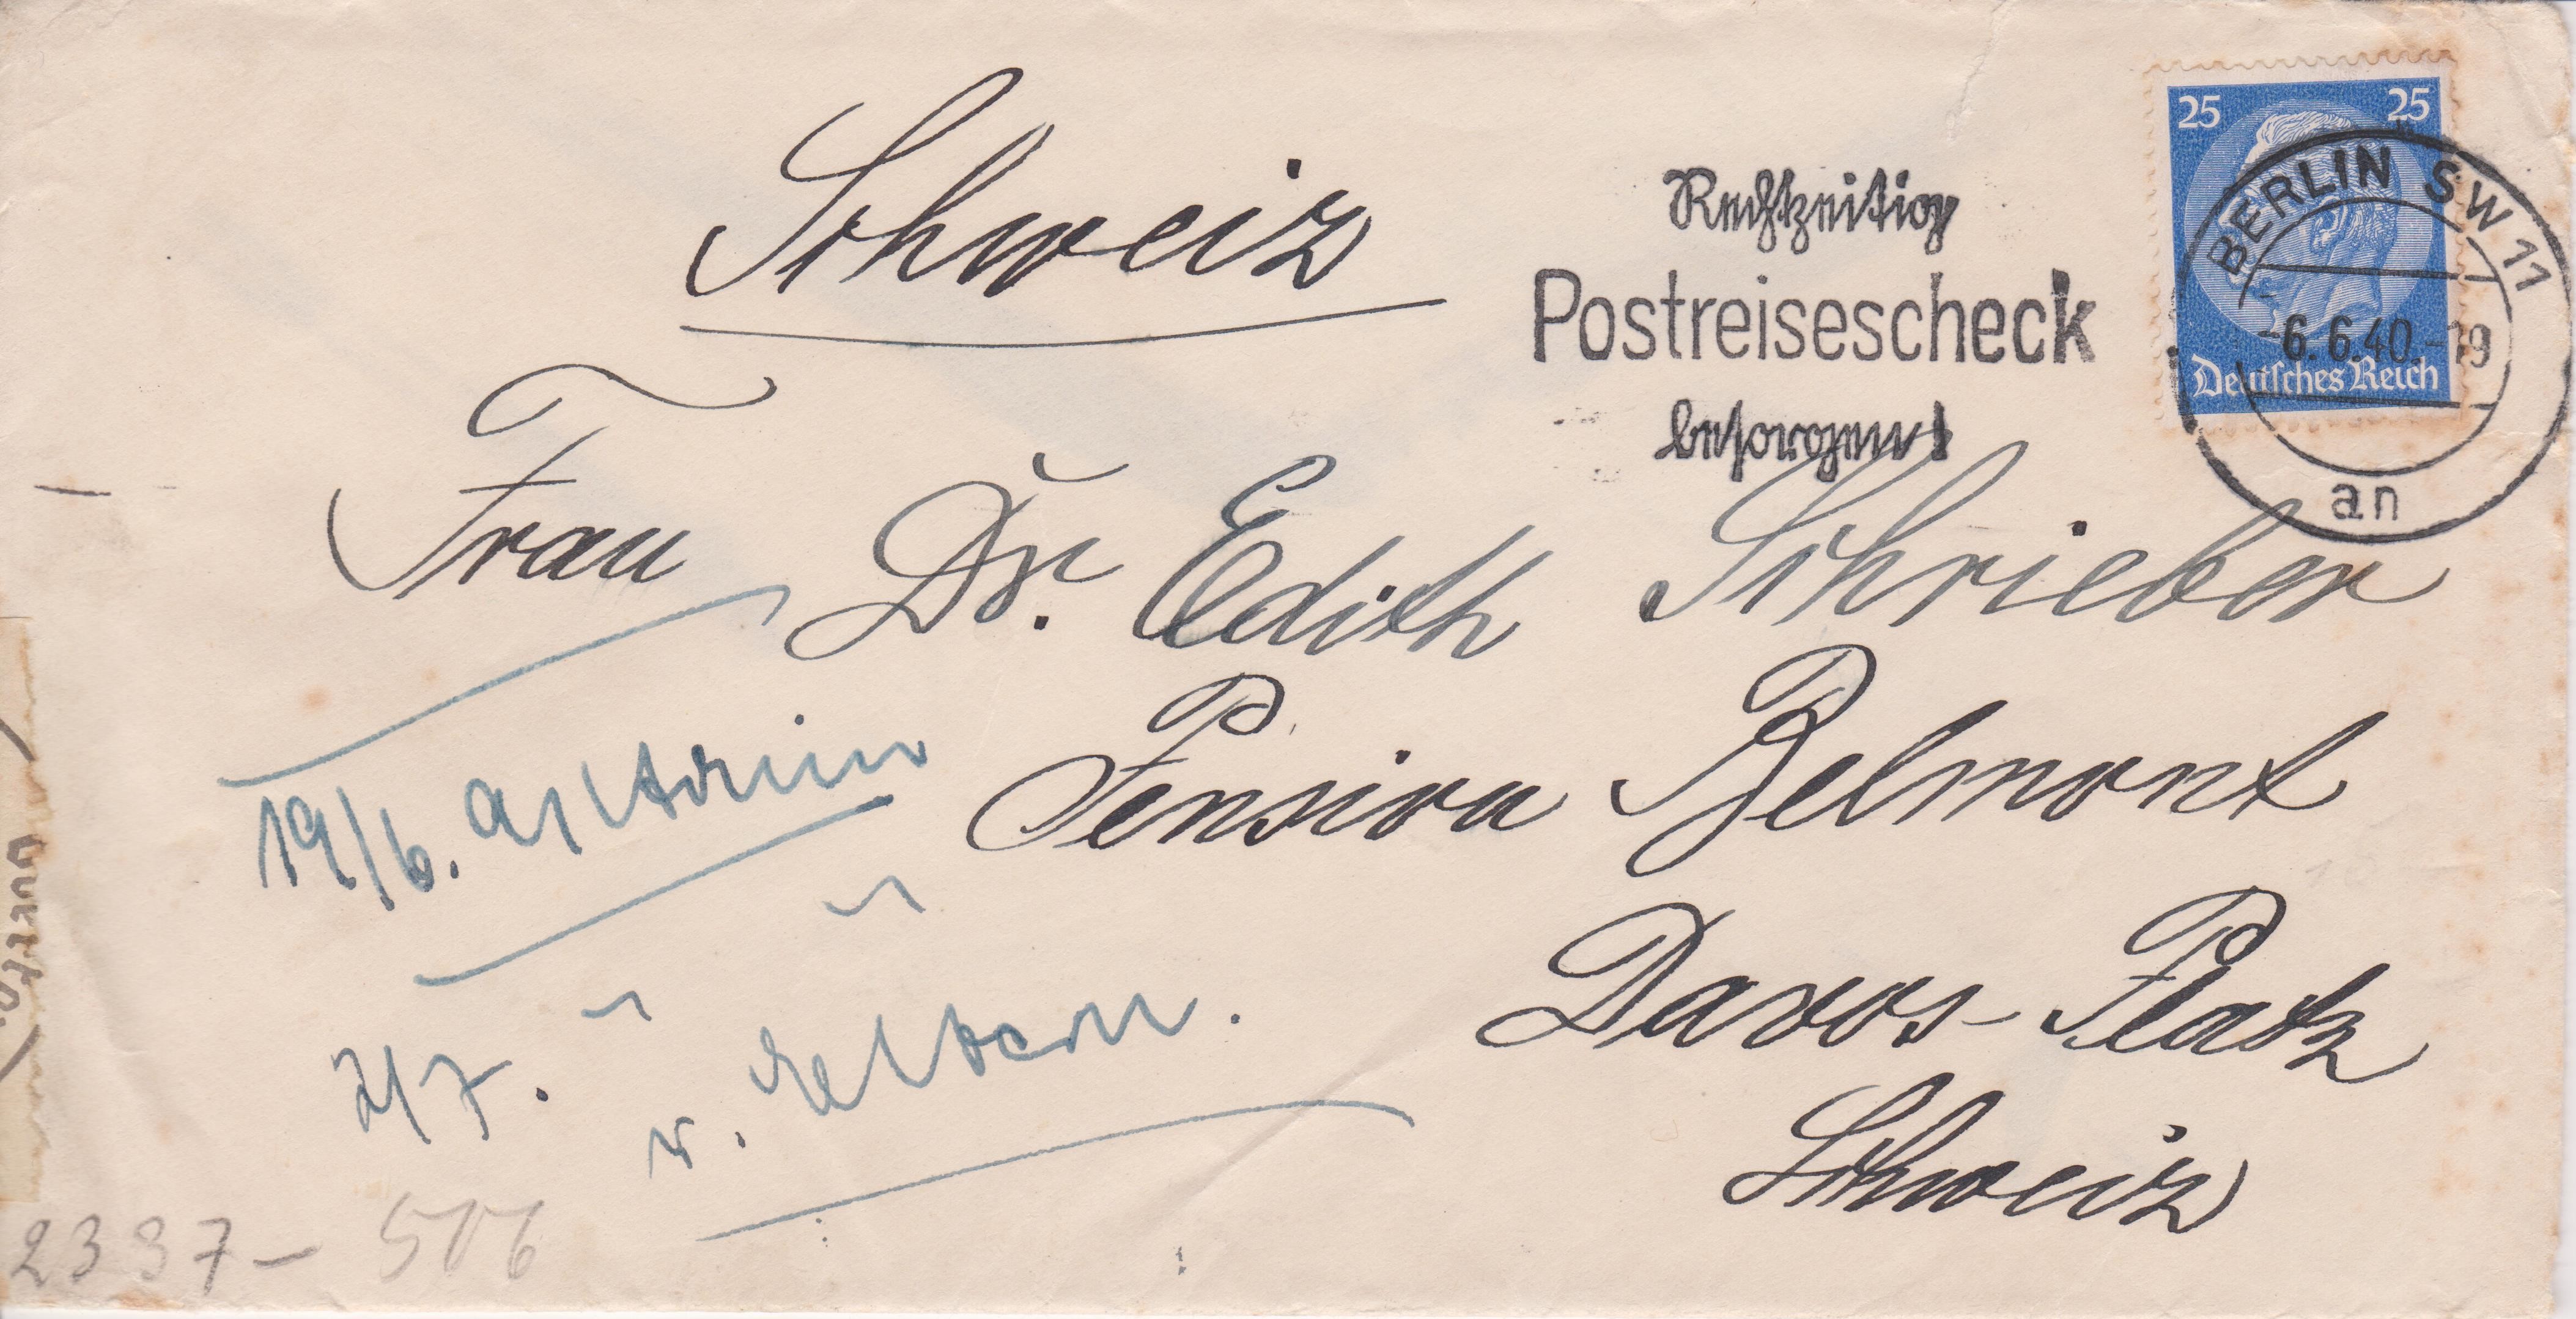 25 25
BERLIN SW 11
-6.6.40.-19
Deutsches Reich
an
Rechtzeitig
Postreisescheck
besorgen!
Schweiz
Frau Dr. Edith Schrieber
Pension Belmont
Davos-Platz
Schweiz
19/6.
2/7.
2337- 506
Geöffnet